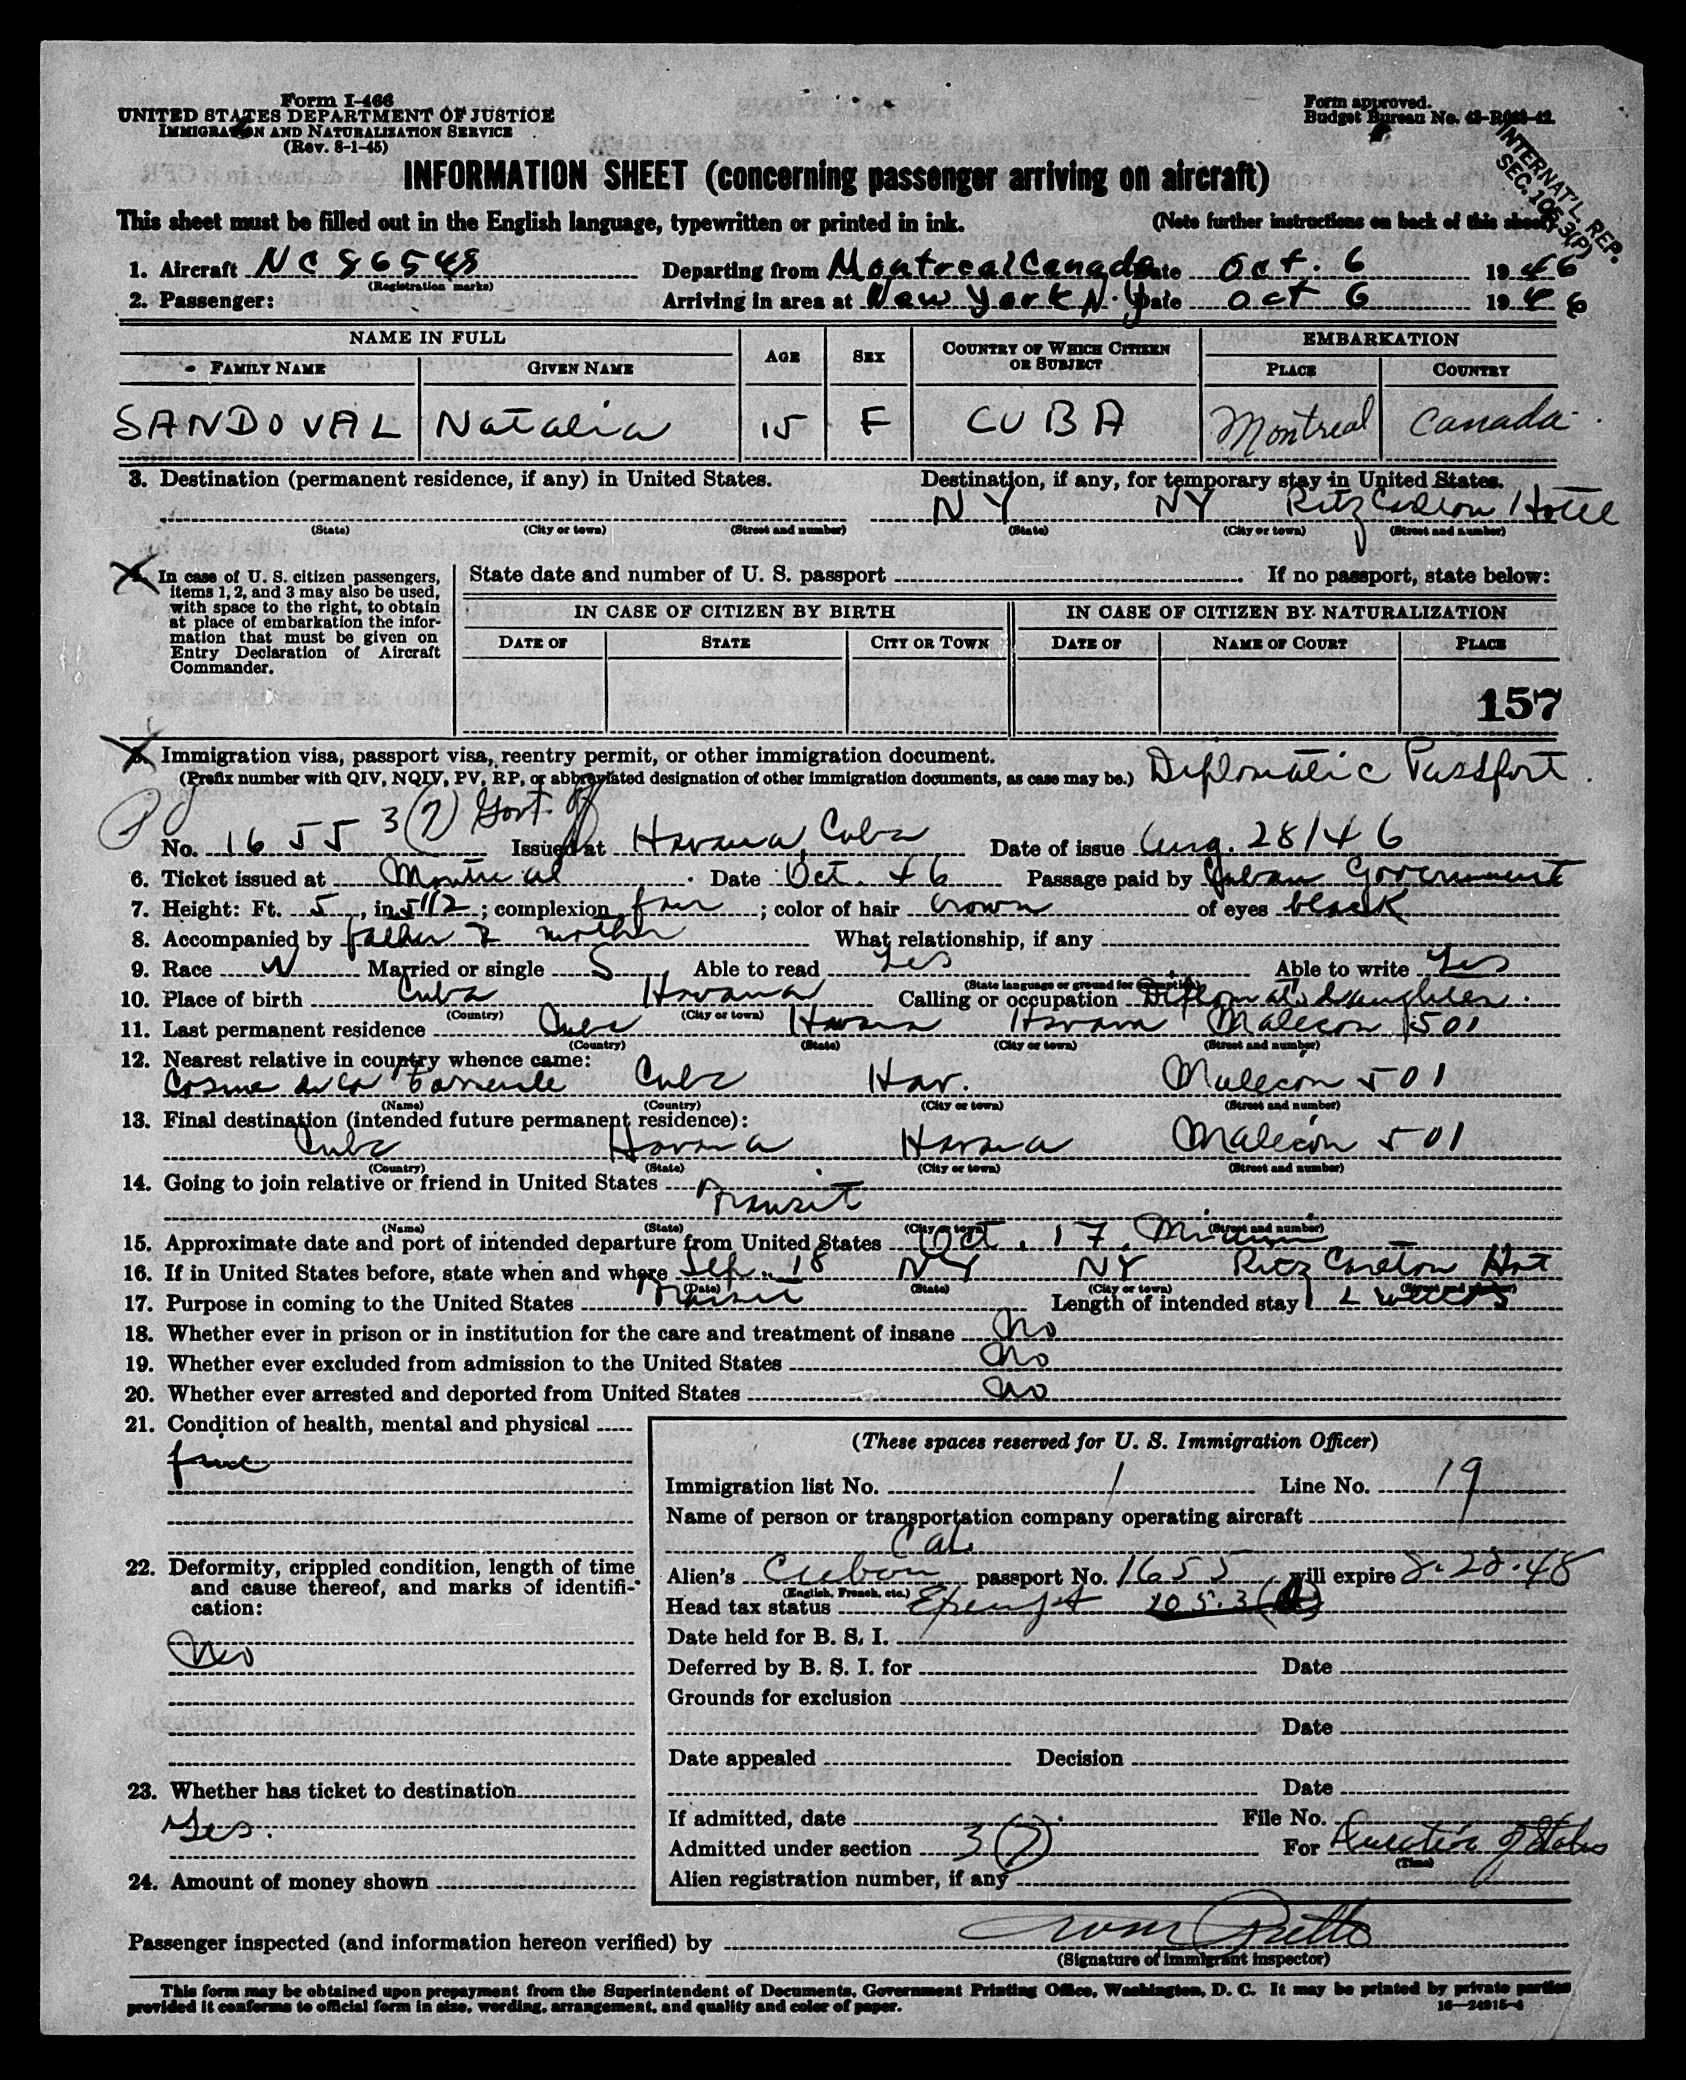 Form I-466
UNITED STATES DEPARTMENT OF JUSTICE
IMMIGRATION AND NATURALIZATION SERVICE
(Rev. 8-1-45)
Form approved.
Budget Bureau No.
INTERNAT'L REP.
SEC. 105.3(P)
INFORMATION SHEET (concerning passenger arriving on aircraft)
This sheet must be filled out in the English language, typewritten or printed in ink. (Note further instructions on back of this sheet)
1. Aircraft NC 86548 Departing from Montreal Canada Date Oct. 6 1946
(Registration marks)
2. Passenger: Arriving in area at New York N.Y. Date Oct 6 1946
NAME IN FULL
FAMILY NAME GIVEN NAME AGE SEX COUNTRY OF WHICH CITIZEN OR SUBJECT EMBARKATION PLACE COUNTRY
SANDOVAL Natalia 15 F CUBA Montreal Canada
3. Destination (permanent residence, if any) in United States. Destination, if any, for temporary stay in United States.
NY NY Ritz Carlton Hotel
(State) (City or town) (Street and number) (State) (City or town) (Street and number)
In case of U. S. citizen passengers, items 1, 2, and 3 may also be used, with space to the right, to obtain at place of embarkation the information that must be given on Entry Declaration of Aircraft Commander.
State date and number of U. S. passport If no passport, state below:
IN CASE OF CITIZEN BY BIRTH IN CASE OF CITIZEN BY NATURALIZATION
DATE OF STATE CITY OR TOWN DATE OF NAME OF COURT PLACE
157
Immigration visa, passport visa, reentry permit, or other immigration document.
(Prefix number with QIV, NQIV, PV, RP, or abbreviated designation of other immigration documents, as case may be.) Diplomatic Passport
3(7) Govt. Off
No. 1655 Issued at Havana, Cuba Date of issue Aug. 28/46
6. Ticket issued at Montreal Date Oct. 46 Passage paid by Cuban Government
7. Height: Ft. 5, in. 5 1/2; complexion fair; color of hair brown of eyes black
8. Accompanied by father & mother What relationship, if any
9. Race W Married or single S Able to read Yes Able to write Yes
(State language or ground for exemption)
10. Place of birth Cuba Havana Calling or occupation Diplomat's daughter
(Country) (City or town)
11. Last permanent residence Cuba Havana Havana Malecon 501
(Country) (State) (City or town) (Street and number)
12. Nearest relative in country whence came:
Cosme de la Torriente Cuba Hav. Malecón 501
(Name) (Country) (City or town) (Street and number)
13. Final destination (intended future permanent residence):
Cuba Havana Havana Malecón 501
(Country) (State) (City or town) (Street and number)
14. Going to join relative or friend in United States
Transit
(Name) (State) (City or town) (Street and number)
15. Approximate date and port of intended departure from United States Oct. 17, Miami
16. If in United States before, state when and where Sep. 18 NY NY Ritz Carlton Hot
(Date) (State) (City or town) (Street and number)
17. Purpose in coming to the United States Transit Length of intended stay 2 weeks
18. Whether ever in prison or in institution for the care and treatment of insane No
19. Whether ever excluded from admission to the United States No
20. Whether ever arrested and deported from United States No
21. Condition of health, mental and physical
fine
22. Deformity, crippled condition, length of time and cause thereof, and marks of identification:
No
23. Whether has ticket to destination
Yes.
24. Amount of money shown
(These spaces reserved for U. S. Immigration Officer)
Immigration list No. 1 Line No. 19
Name of person or transportation company operating aircraft
Cal.
Alien's Cuban passport No. 1655 will expire 8-28-48
(English, French, etc.)
Head tax status Exempt 105.3
Date held for B. S. I.
Deferred by B. S. I. for Date
Grounds for exclusion
Date
Date appealed Decision
Date
If admitted, date File No.
Admitted under section 3(7) For Duration of Status
(Time)
Alien registration number, if any
Passenger inspected (and information hereon verified) by
(Signature of immigrant inspector)
This form may be obtained upon prepayment from the Superintendent of Documents, Government Printing Office, Washington, D. C. It may be printed by private parties
provided it conforms to official form in size, wording, arrangement, and quality and color of paper.
16-24915-4